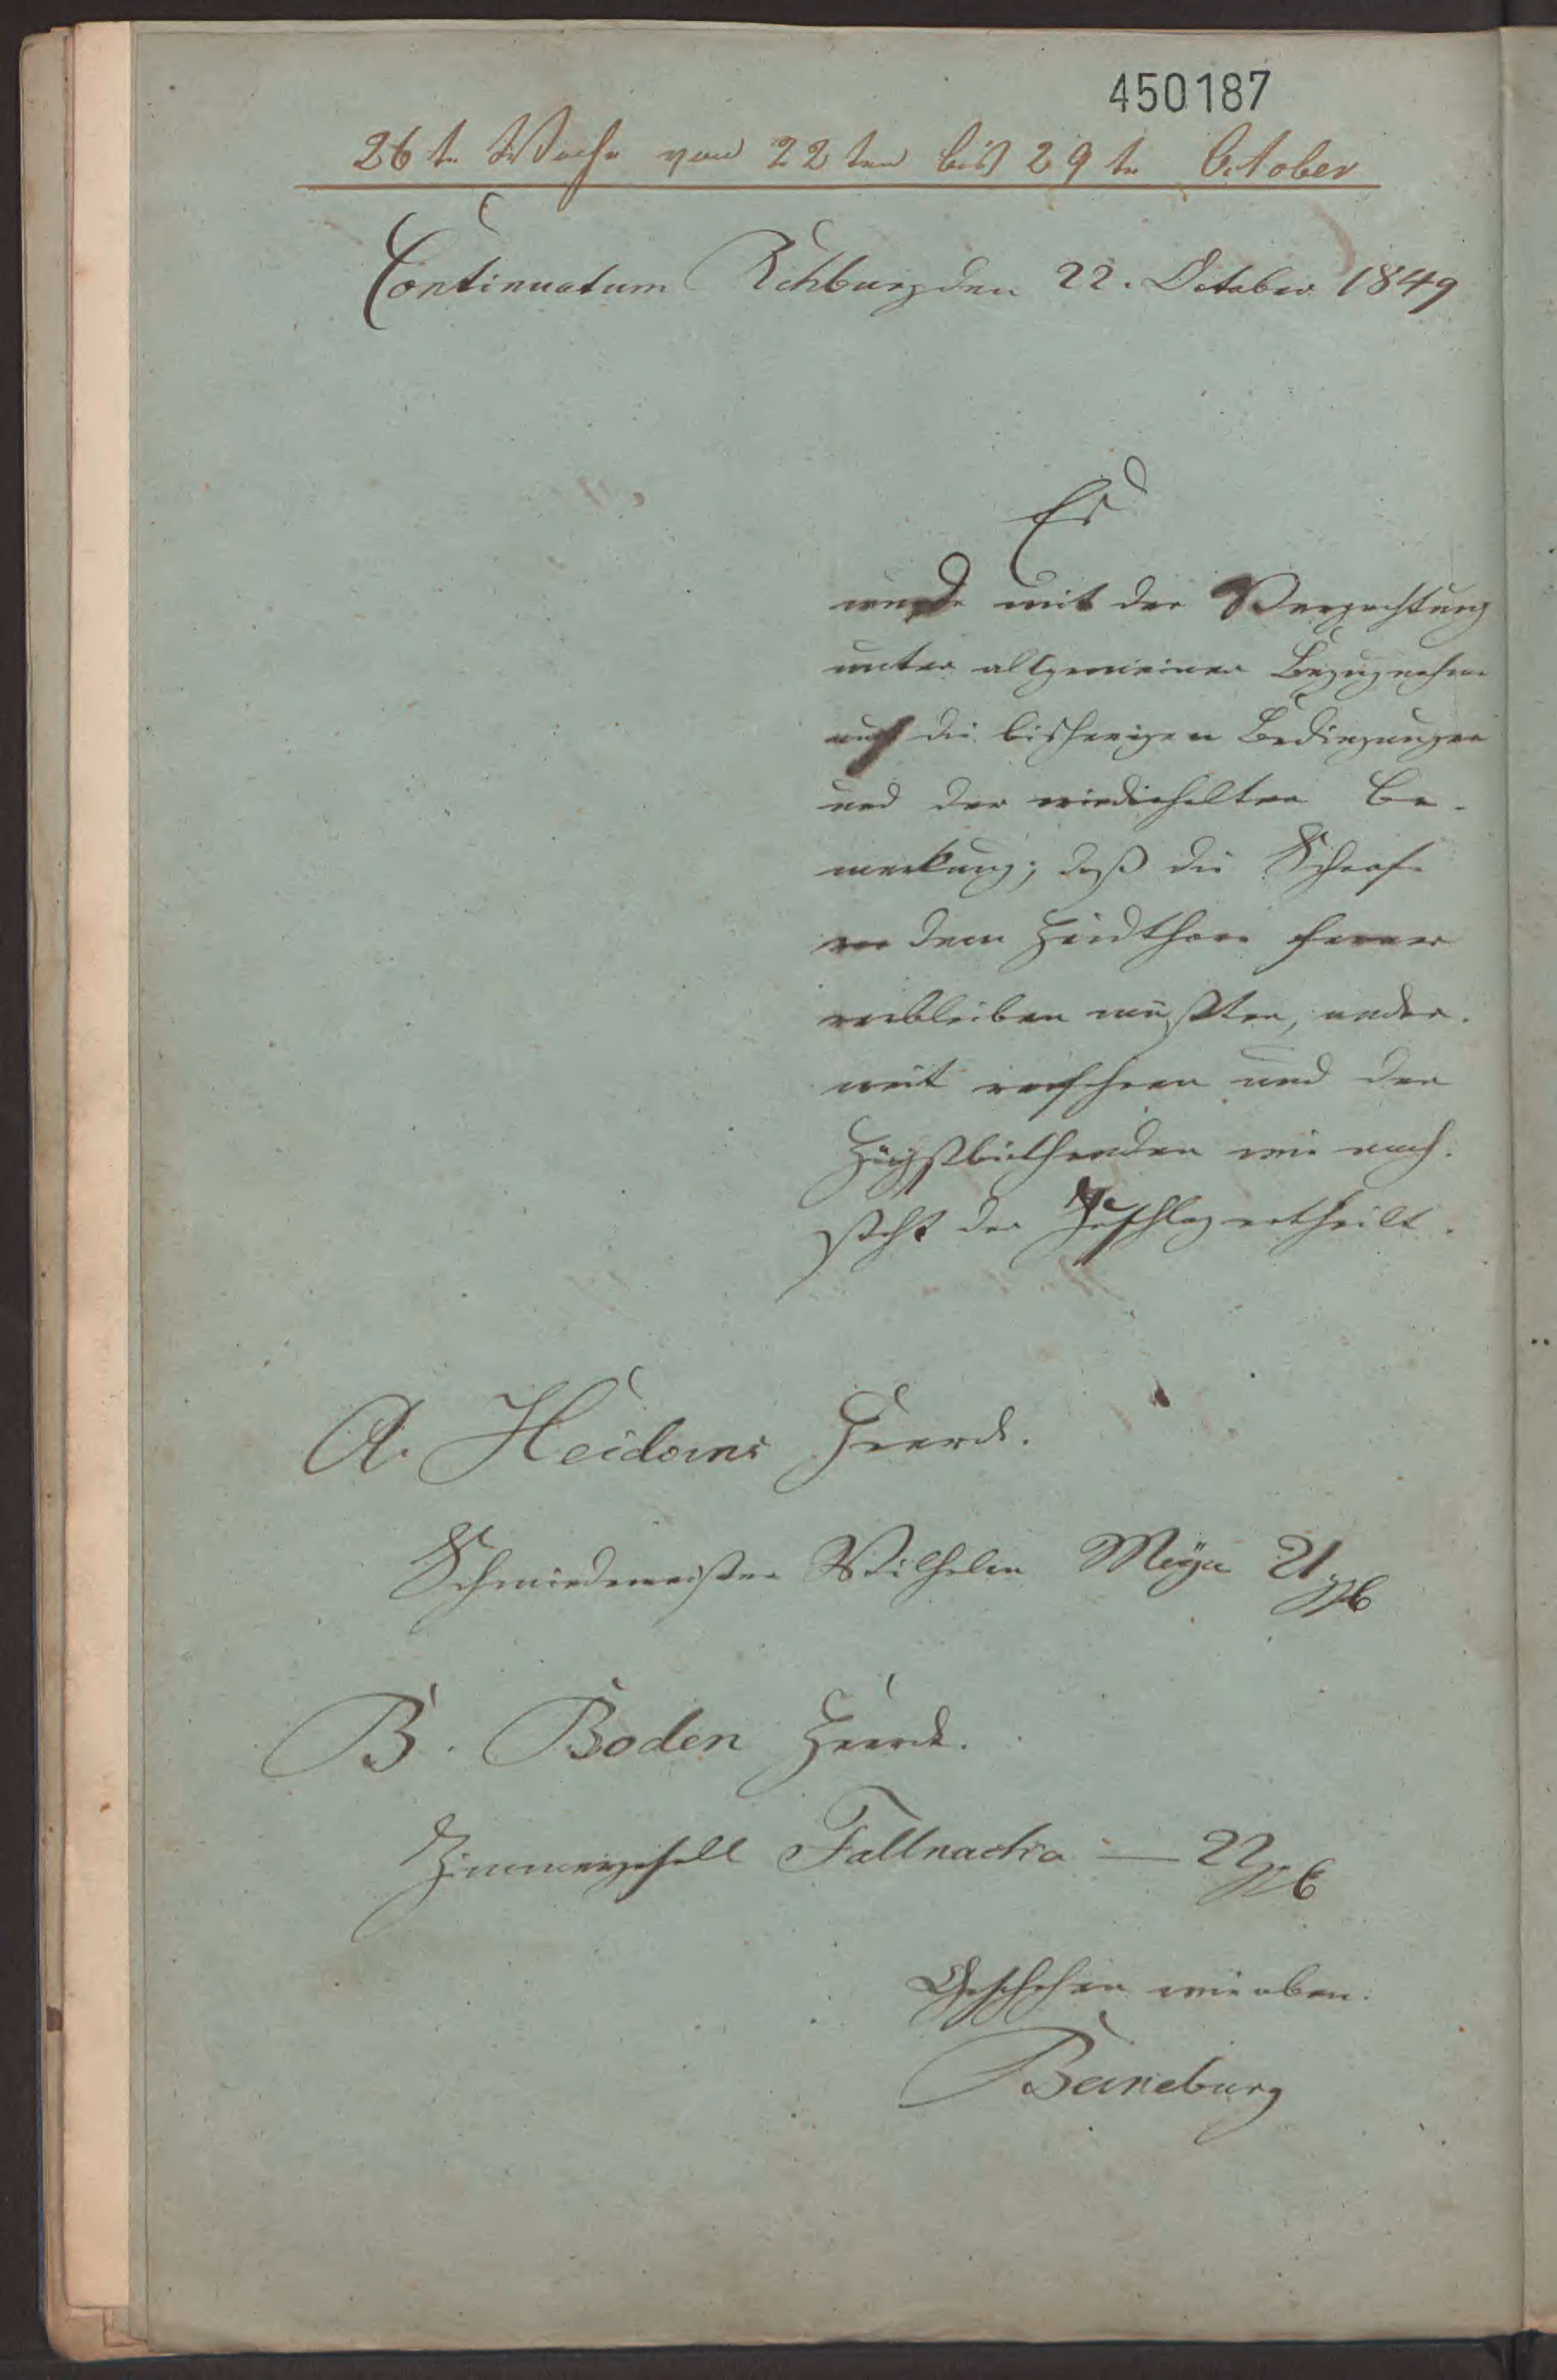 450187
26te Woche von 22ten bis 29te October
Continuatum Rehburg den 22. October 1849
Es
wurde mit der Verpachtung
unter allgemeiner Bezugnahme
auf die bisherigen Bedingungen
und der wiederholten Be-
merkung, daß die Schaafe
vor dem Heidthore ferner
verbleiben müßten, ander-
weit verfahren und den
Höchstbiethenden wie nach-
steht der Zuschlag ertheilt.
A. Heidorns Heerde.
Schmiedemeister Wilhelm Meyer 21
B. Boden Heerde.
Zimmergesell — 22
Geschehen wie oben.